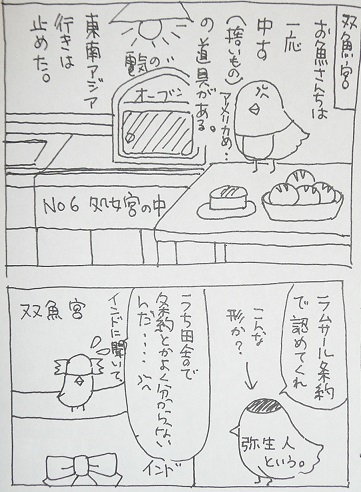 双魚宮
お魚さんちは
一応
中す
(捨いもの)
アメリカめ…
の道具がある。
電気の
オーブン
東南アジア
行きは
止めた。
No6 処女宮の中
ラムサール条約
で認めてくれ
こんな
形か?
弥生人
という。
うち田舎ので
条約とかよく分からない
んだ……
インド
インドに聞いて、
双魚宮